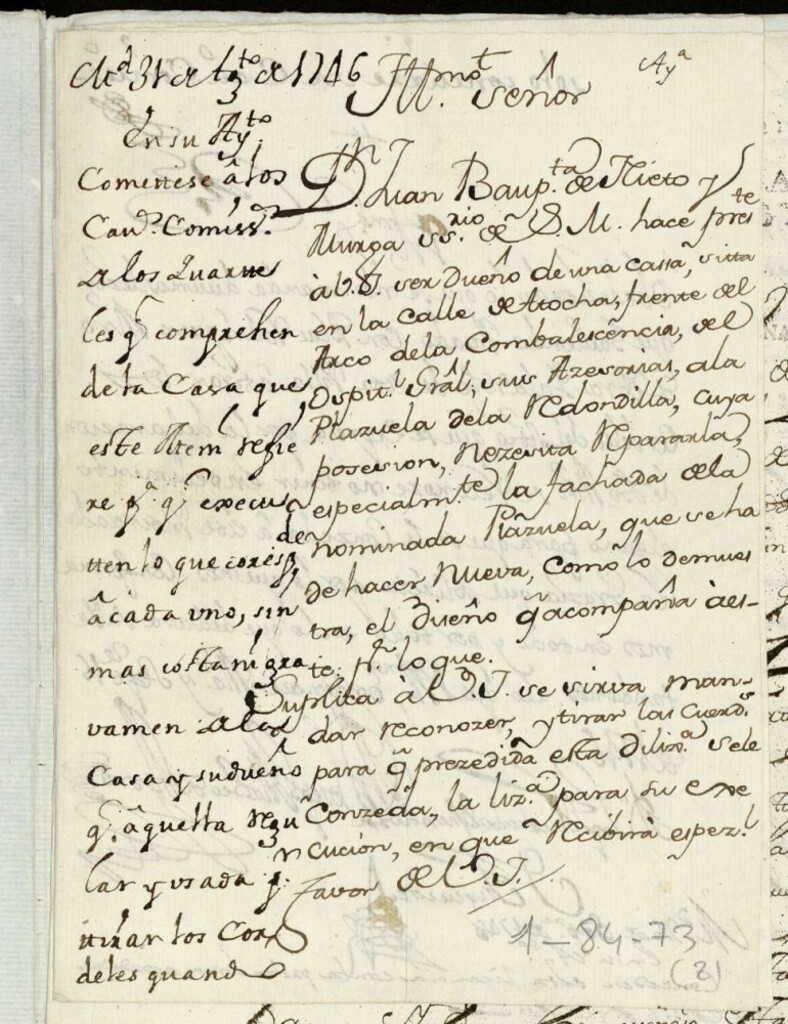 Md. 31 de Agto de 1746
En su Ayto.
Cometiese â los
Cavs. Comiss.
de los Quarte
les q comprehen
de la Casa que
este Mem.l refie
re pa. q execu
tten lo que coresp.de
â cada vno, sin
mas costa ni gra
vamen de la
Casa y su dueño
q. âquella regu
lar y usada p.r
ttirar los Cor
deles quando
Aya
Illmo. Señor
Dn. Juan Baup.ta de Nieto y
Murga ss.rio de S. M. hace pres.te
à V.I. ser Dueño de una cassa, sitta
en la calle de Atocha, frente del
Arco dela Combalescencia, del
Ospit.l Gräl, sus Azesorias, ala
Plazuela dela Redondilla, cuya
posesion, Nezesita Repararla,
especialm.te la fachada dela
nominada Plazuela, que se ha
de hacer Nueva, como lo demues
tra, el diseño q acompaña à es-
te: pr. lo que.
Suplica à V.I. se sirva man-
dar reconozer, y tirar las Cuerds.
para q prezedida esta diliz.a sele
Conzeda, la liz.a para su exe
cucion, en que Recibirà espez.l
favor de V.I.
1-84-73
(2)